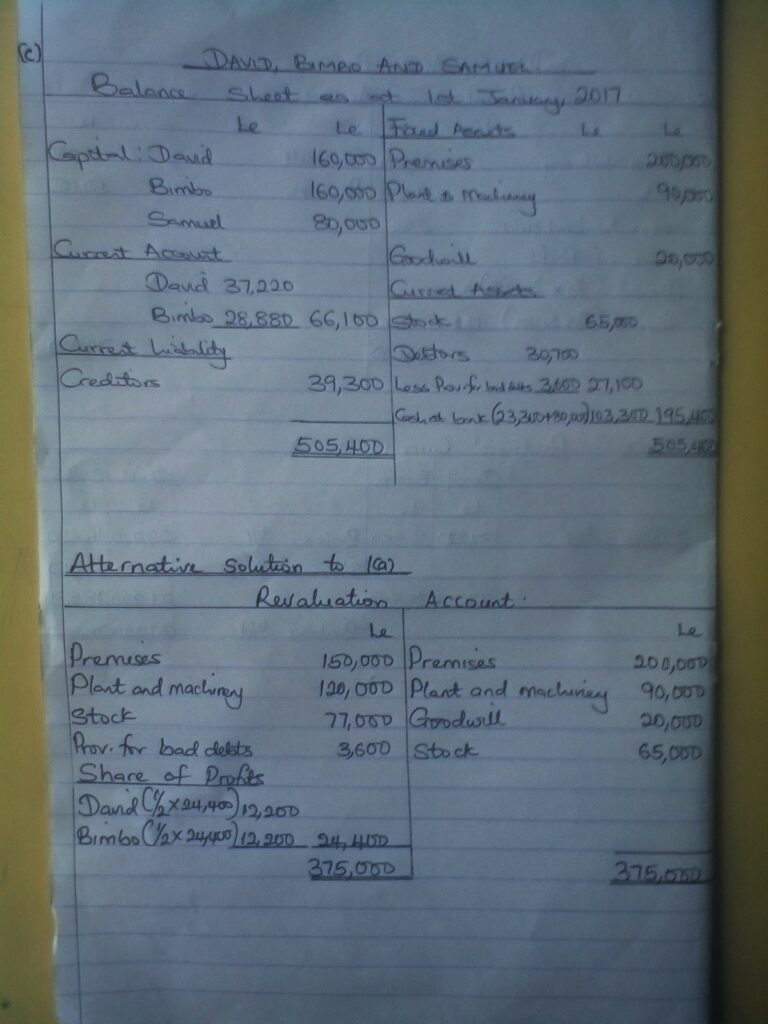 (c)
DAVID, BIMBO AND SAMUEL
Balance Sheet as at 1st January, 2017
Le Le Fixed Assets Le Le
Capital: David 160,000 Premises 200,000
Bimbo 160,000 Plant & Machinery 90,000
Samuel 80,000
Current Account Goodwill 20,000
David 37,220 Current Assets
Bimbo 28,880 66,100 Stock 65,000
Current Liability Debtors 30,700
Creditors 39,300 Less Prov. for bad debts 3,600 27,100
Cash at bank (23,300+80,000) 103,300 195,400
505,400 505,400
Alternative Solution to 1(a)
Revaluation Account.
Le Le
Premises 150,000 Premises 200,000
Plant and machinery 120,000 Plant and machinery 90,000
Stock 77,000 Goodwill 20,000
Prov. for bad debts 3,600 Stock 65,000
Share of Profits
David (1/2 x 24,400) 12,200
Bimbo (1/2 x 24,400) 12,200 24,400
375,000 375,000